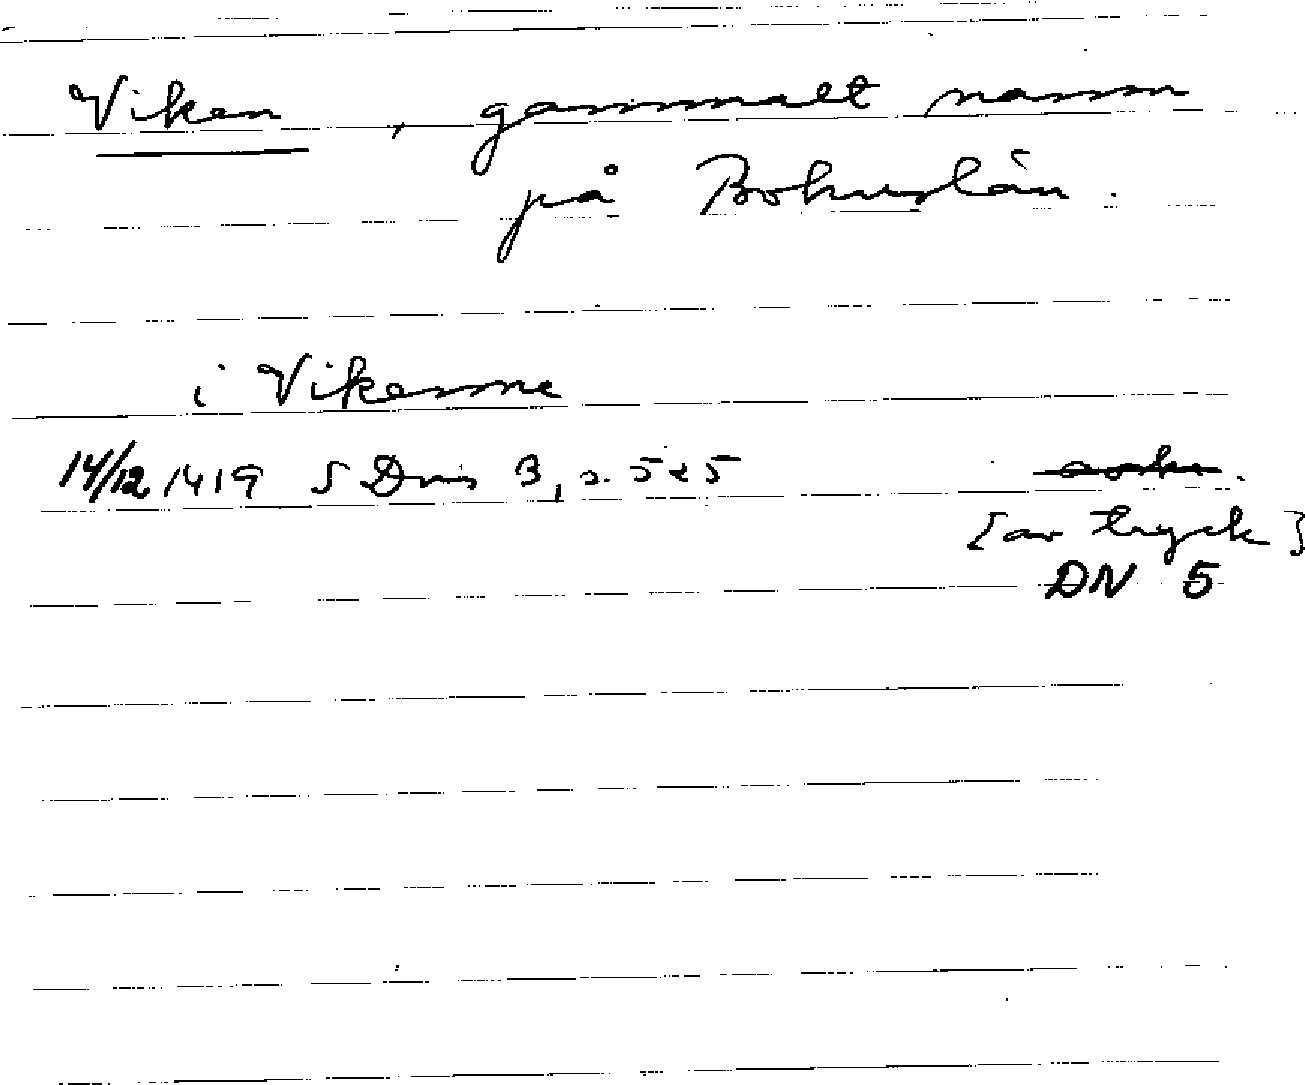 Viken, gammalt namn
på Bohuslän.
i Vikenne
14/12 1419 SDns 3, s. 525
[av tryck]
DN 5